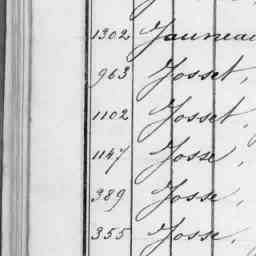 1302 Jauneau
963 Josset,
1102 Josset,
1147 Josse,
389 Josse,
355 Josse.